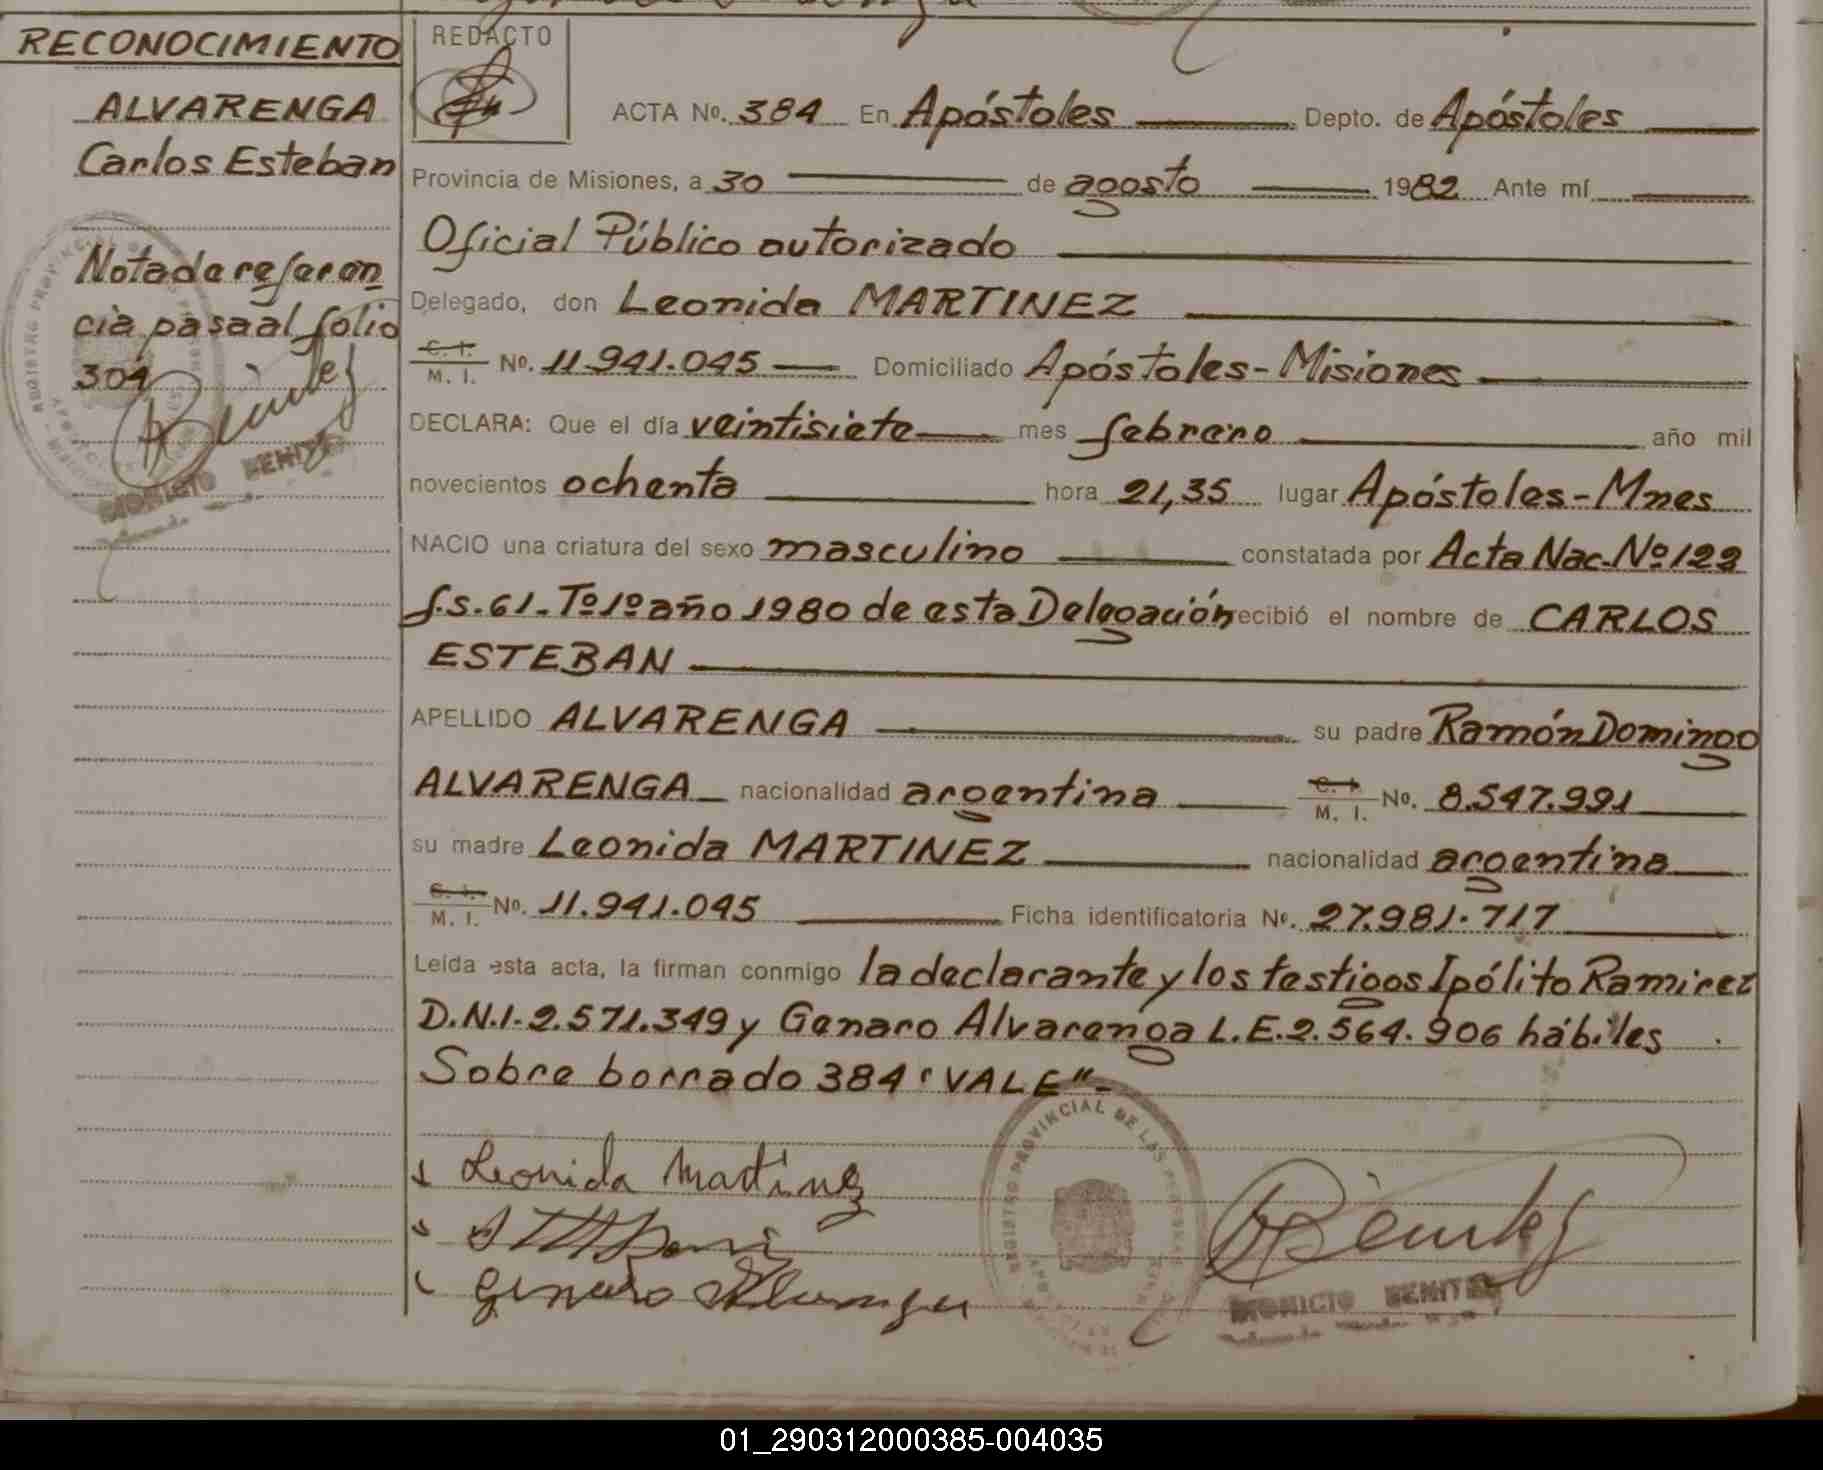 RECONOCIMIENTO
ALVARENGA
Carlos Esteban
Nota de referen
cia pasa al folio
304
DIONICIO BENITEZ
REDACTO
ACTA No. 384 En Apóstoles Depto. de Apóstoles
Provincia de Misiones, a 30 de agosto 1982 Ante mí
Oficial Público autorizado
Delegado, don Leonida MARTINEZ
C. I. M. I. No. 11.941.045 Domiciliado Apóstoles - Misiones
DECLARA: Que el día veintisiete mes febrero año mil
novecientos ochenta hora 21,35 lugar Apóstoles - Mnes
NACIO una criatura del sexo masculino constatada por Acta Nac. Nº 122
f.s. 61. Tº 1º año 1980 de esta Delegación recibió el nombre de CARLOS
ESTEBAN
APELLIDO ALVARENGA su padre Ramón Domingo
ALVARENGA nacionalidad argentina C. I. M. I. No. 8.547.991
su madre Leonida MARTINEZ nacionalidad argentina
C. I. M. I. No. 11.941.045 Ficha identificatoria No. 27.981.717
Leída esta acta, la firman conmigo la declarante y los testigos Ipólito Ramirez
D.N.I. 2.571.349 y Genaro Alvarenga L.E. 2.564.906 hábiles
Sobre borrado 384 "VALE"-
Leonida Martinez
Genaro Alvarenga
REGISTRO PROVINCIAL DE LAS PERSONAS
DIONICIO BENITEZ
01_290312000385-004035